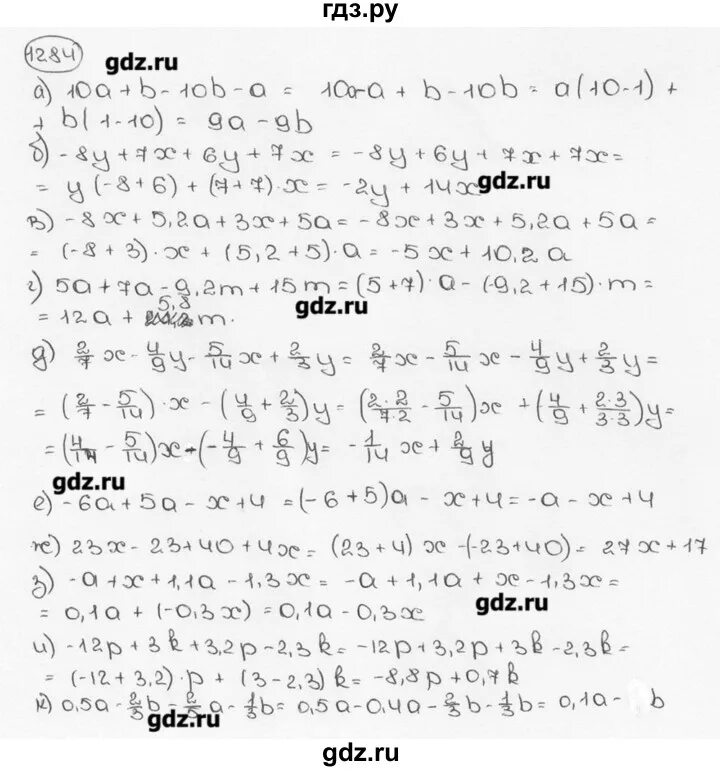 гдз.ру
1284
gdz.ru
а) 10a + b - 10b - a = 10a-a + b - 10b = a(10-1) +
+ b(1-10) = 9a - 9b
б) -8y + 7x + 6y + 7x = -8y + 6y + 7x + 7x =
= y(-8+6) + (7+7)·x = -2y + 14x
gdz.ru
в) -8x + 5,2a + 3x + 5a = -8x + 3x + 5,2a + 5a =
= (-8+3)·x + (5,2+5)·a = -5x + 10,2a
г) 5a + 7a - 9,2m + 15m = (5+7)·a - (-9,2+15)·m =
gdz.ru
= 12a + 5,8m.
д) 2/7 x - 4/9 y - 5/14 x + 2/3 y = 2/7 x - 5/14 x - 4/9 y + 2/3 y =
= (2/7 - 5/14)·x - (4/9 + 2/3)y = (2·2/7·2 - 5/14)x + (4/9 + 2·3/3·3)y =
= (4/14 - 5/14)x - (-4/9 + 6/9)y = -1/14 x + 2/9 y
gdz.ru
е) -6a + 5a - x + 4 = (-6+5)a - x + 4 = -a - x + 4
ж) 23x - 23 + 40 + 4x = (23+4)x - (-23+40) = 27x + 17
з) -a + x + 1,1a - 1,3x = -a + 1,1a + x - 1,3x =
= 0,1a + (-0,3x) = 0,1a - 0,3x
gdz.ru
и) -12p + 3k + 3,2p - 2,3k = -12p + 3,2p + 3k - 2,3k =
= (-12 + 3,2)·p + (3 - 2,3)k = -8,8p + 0,7k
к) 0,5a - 2/3 b - 2/5 a - 1/3 b = 0,5a - 0,4a - 2/3 b - 1/3 b = 0,1a - b
gdz.ru
gdz.ru